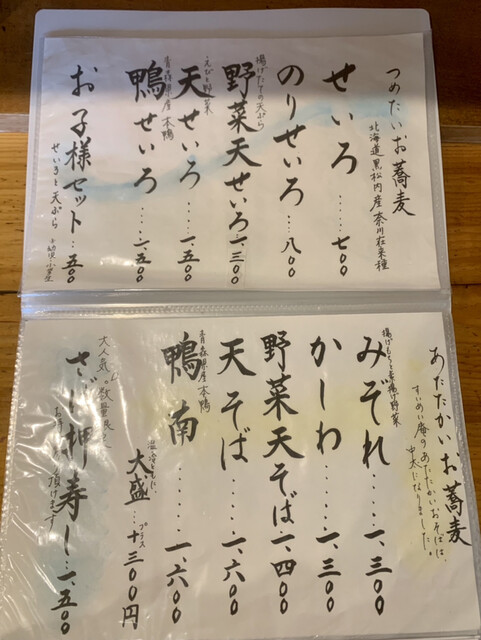 つめたいお蕎麦
北海道黒松内産奈川在来種
せいろ……七〇〇
のりせいろ…八〇〇
揚げたての天ぷら
野菜天せいろ…一、三〇〇
えびと野菜
天せいろ……一、五〇〇
青森県産本鴨
鴨せいろ……一、五〇〇
お子様セット…五〇〇
せいろと天ぷら
あたたかいお蕎麦
すいめい庵のあたたかいおそばは、
中太になりました。
揚げもちと素揚げ野菜
みぞれ……一、三〇〇
かしわ……一、三〇〇
野菜天そば…一、四〇〇
天そば……一、六〇〇
青森県産本鴨
鴨南……一、六〇〇
温冷ともに、
大盛…プラス十三〇〇円
大人気の数量限定
さば押寿し…一、五〇〇
頂けます